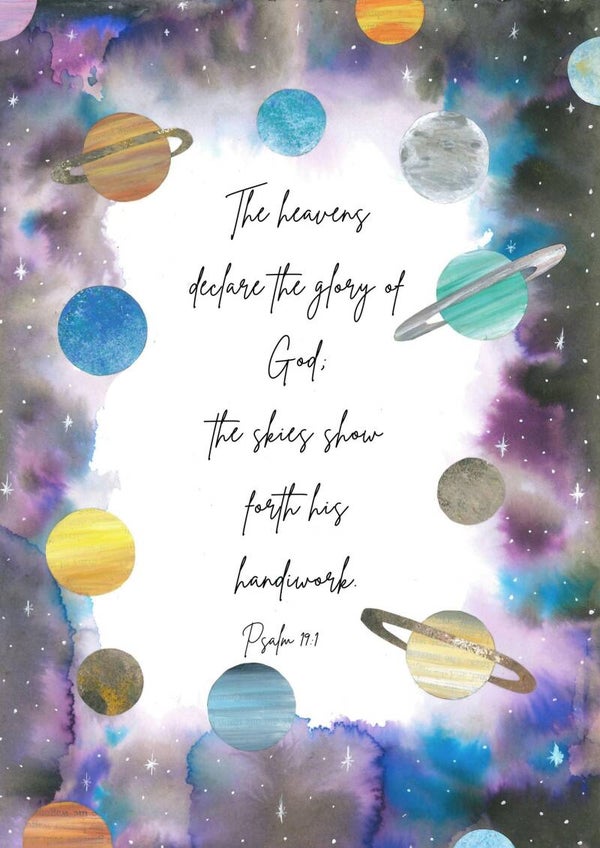 The heavens
declare the glory of
God;
the skies show
forth his
handiwork.
Psalm 19:1